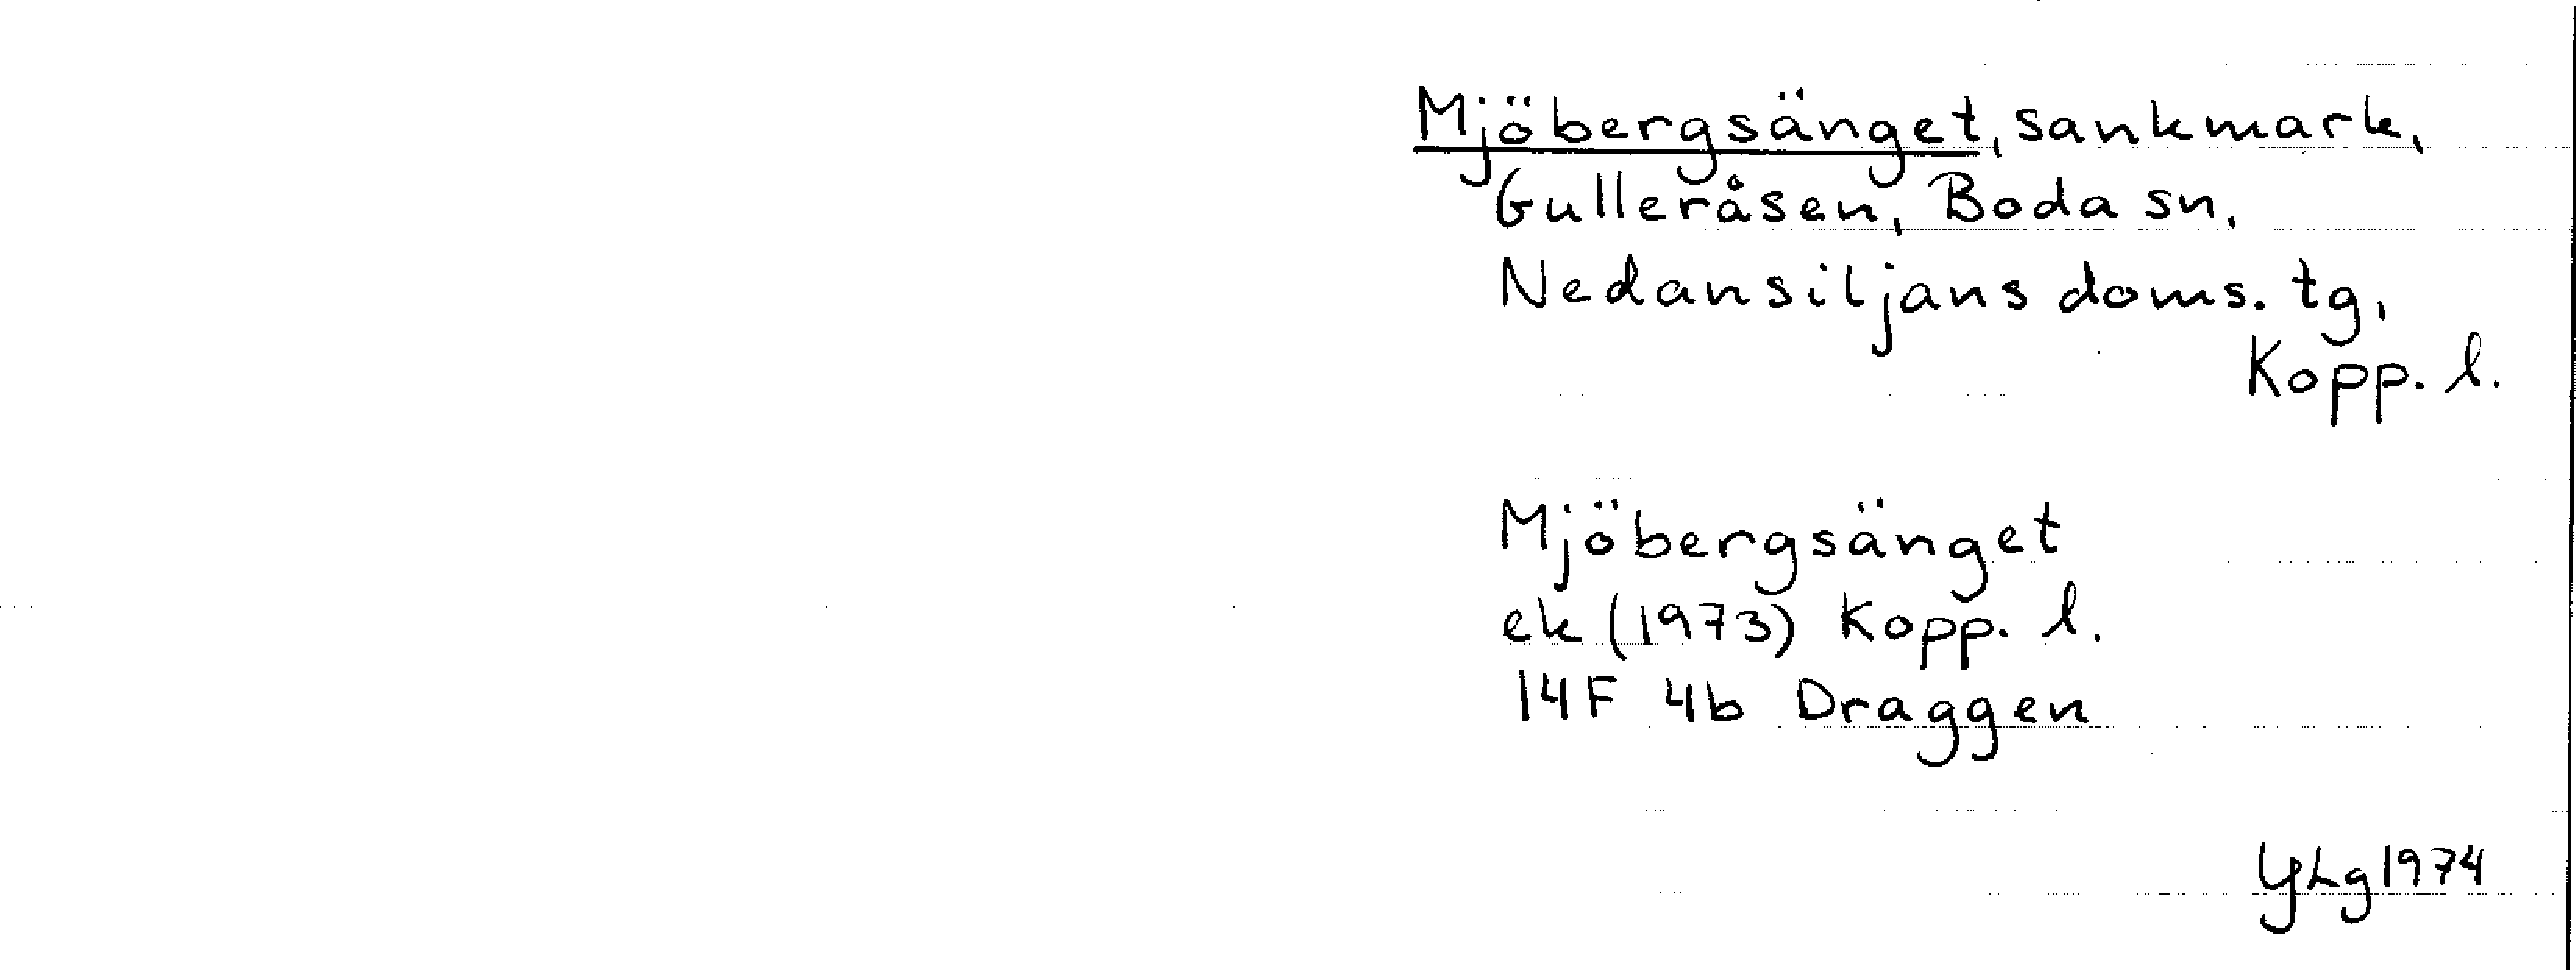 Mjöbergsänget, sankmark,
Gulleråsen, Boda sn,
Nedansiljans doms. tg,
Kopp. l.
Mjöbergsänget
ek (1973) Kopp. l.
14F 4b Draggen
YLg 1974